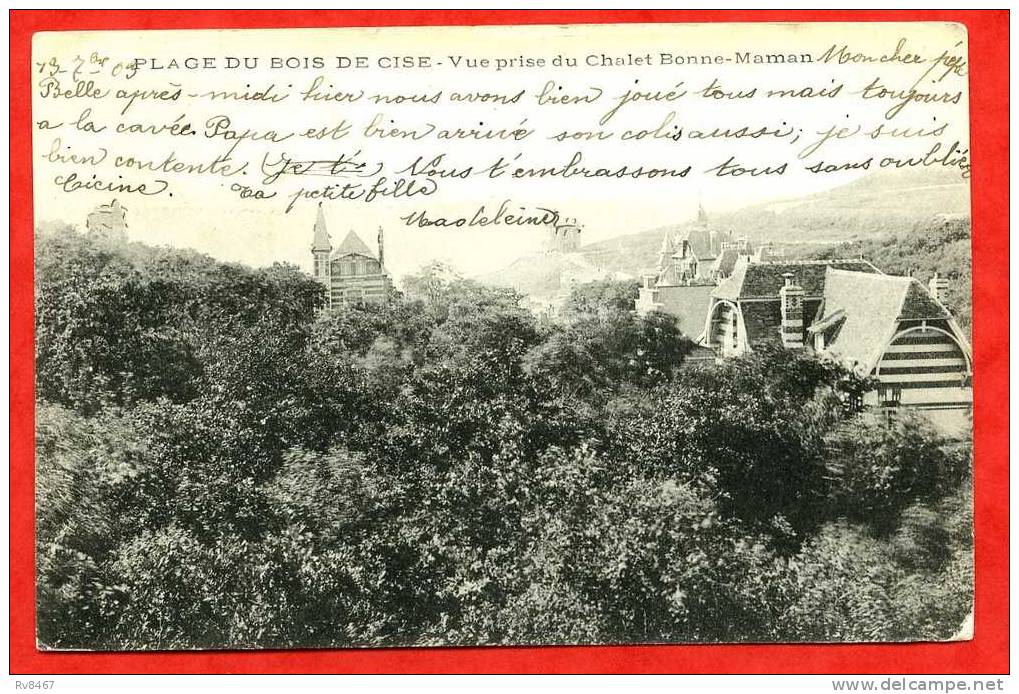 13-7bre 03 PLAGE DU BOIS DE CISE - Vue prise du Chalet Bonne-Maman Mon cher pépé
Belle après-midi hier nous avons bien joué tous mais toujours
a la cavée. Papa est bien arrivé son colis aussi; je suis
bien contente. (Je t'é) Nous t'embrassons tous sans oublier
Cicine. Ta petite fille
Madeleine
Rv8467
http://www.delcampe.net